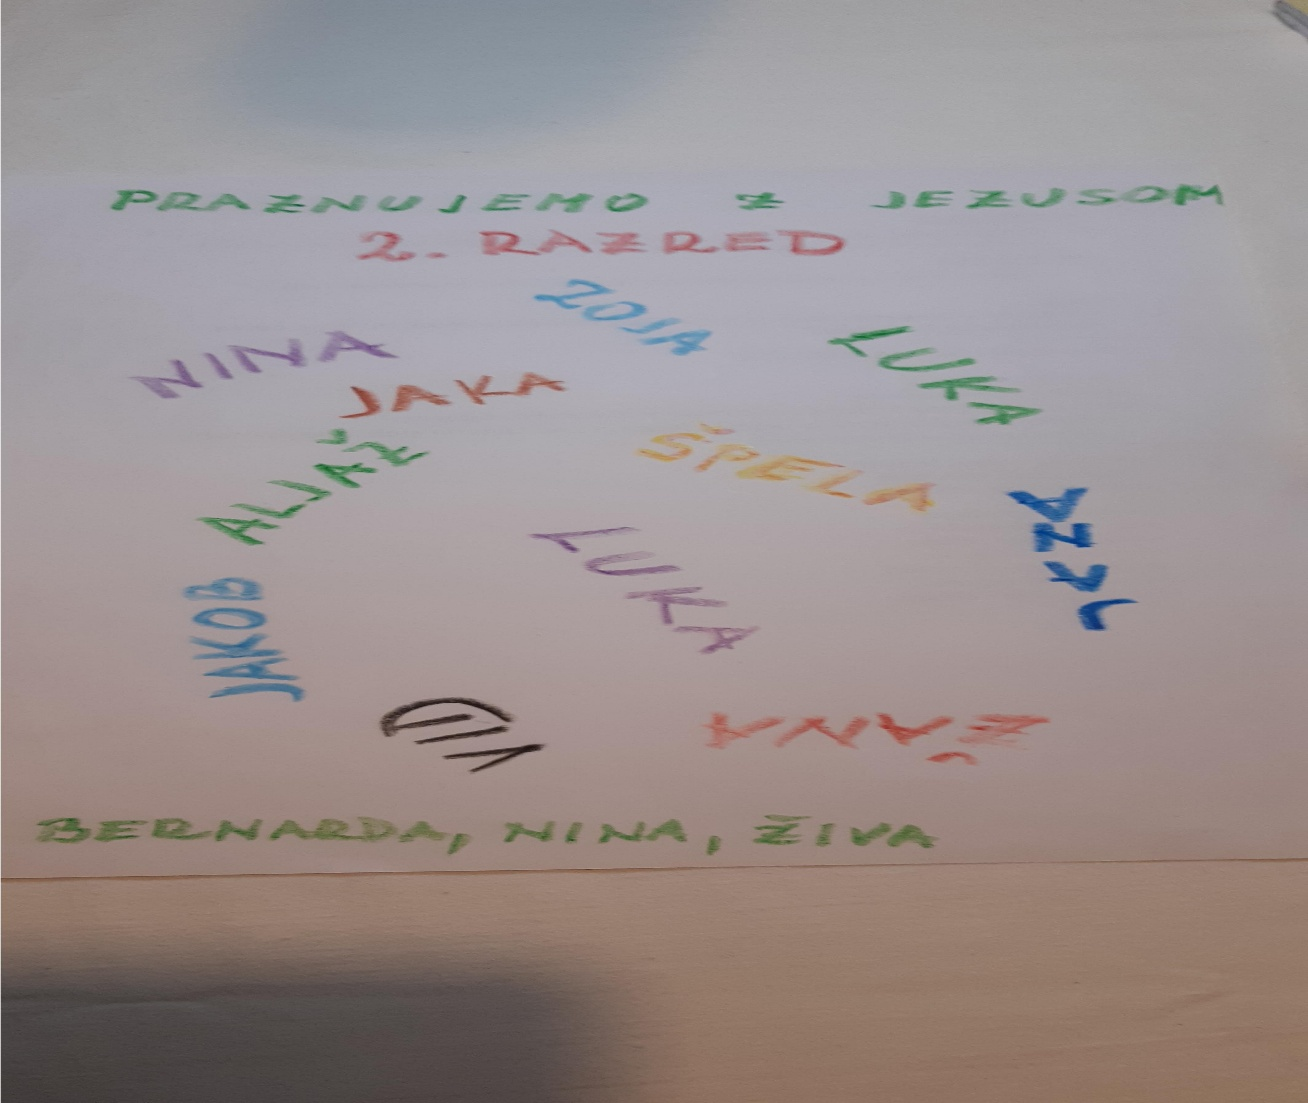 PRAZNUJEMO Z JEZUSOM
2. RAZRED
ZOJA
NINA
LUKA
JAKA
ALJAŽ
ŠPELA
JANA
LUKA
JAKOB
VID
ŽANA
BERNARDA, NINA, ŽIVA